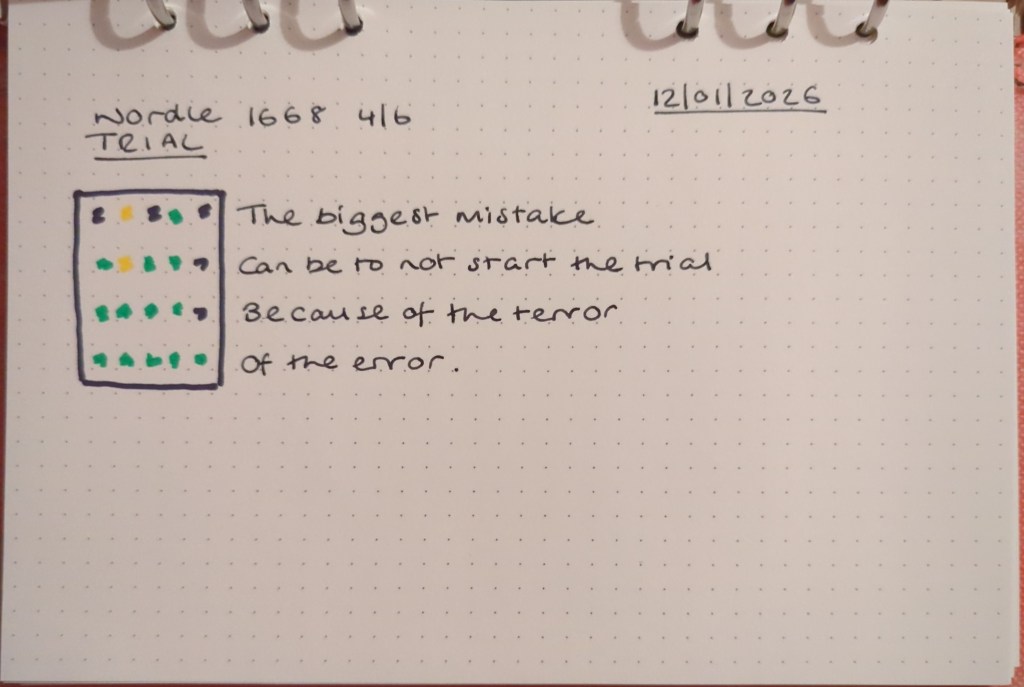 Wordle 1668 4/6
12/01/2026
TRIAL
The biggest mistake
Can be to not start the trial
Because of the terror
Of the error.